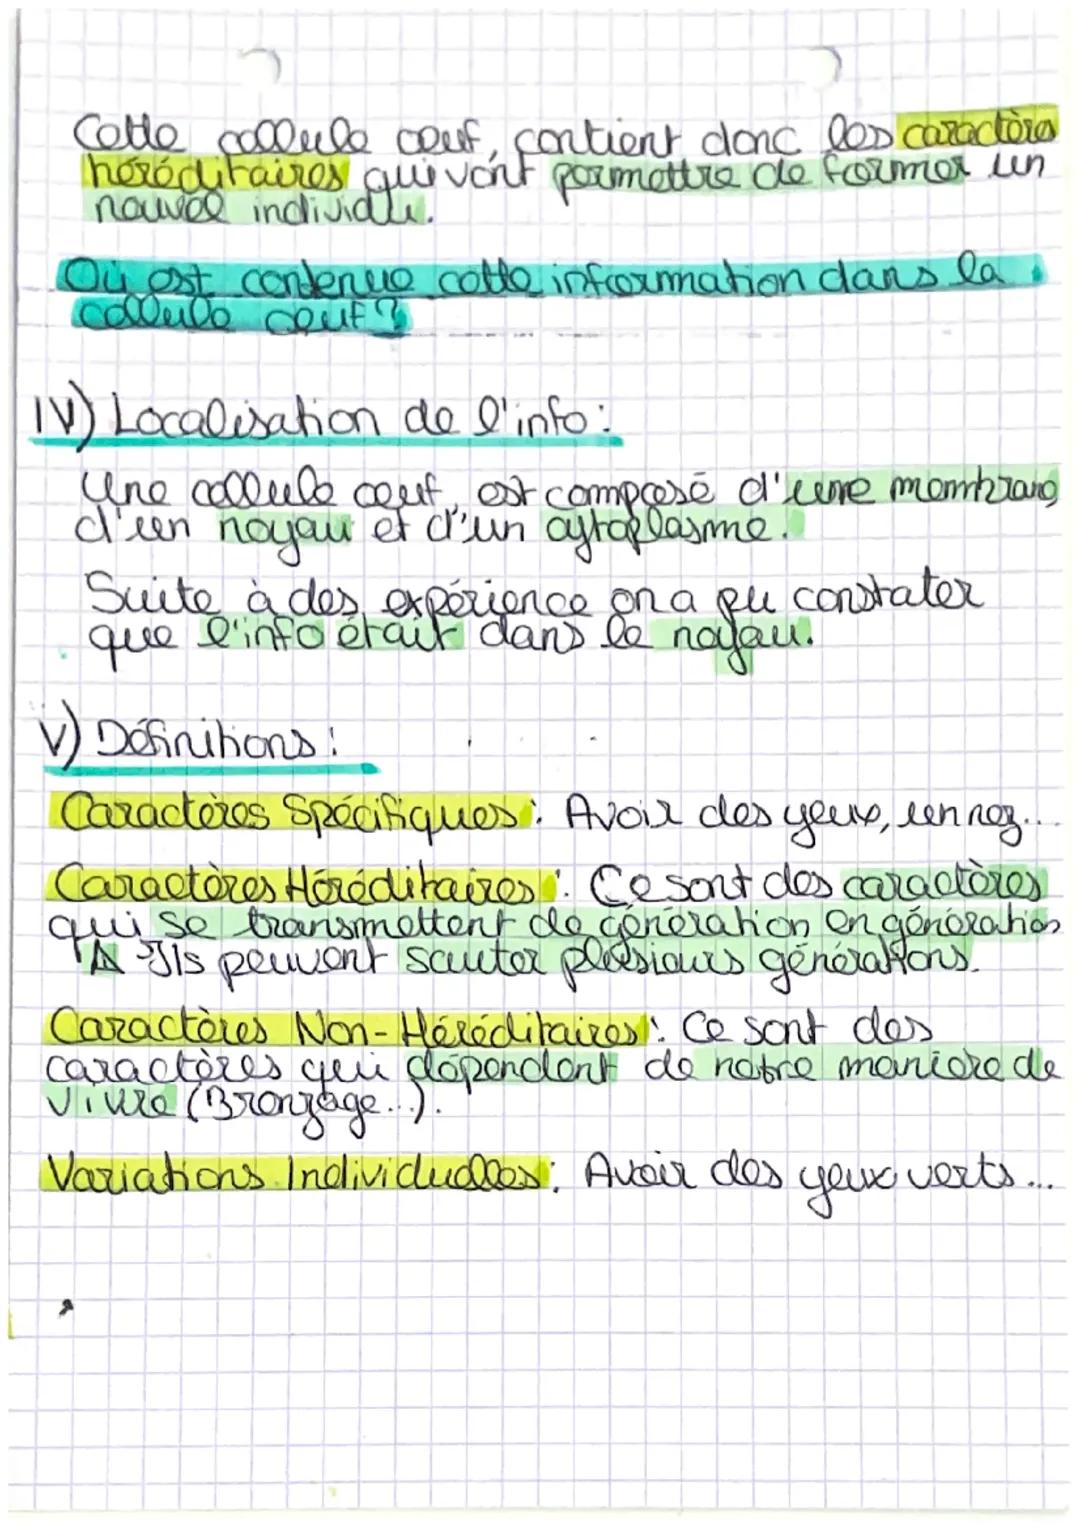 Cette cellule œuf, contient donc les caractères
héréditaires qui vont permettre de former un
nouvel individu.
Où est contenue cette information dans la
cellule œuf ?
IV) Localisation de l'info :
Une cellule œuf, est composé d'une membrane,
d'un noyau et d'un cytoplasme.
Suite à des expérience on a pu constater
que l'info était dans le noyau.
V) Définitions :
Caractères Spécifiques : Avoir des yeux, un nez...
Caractères Héréditaires : Ce sont des caractères
qui se transmettent de génération en génération
⚠ Ils peuvent sauter plusieurs générations.
Caractères Non-Héréditaires : Ce sont des
caractères qui dépendent de notre manière de
vivre (Bronzage...).
Variations Individuelles : Avoir des yeux verts...